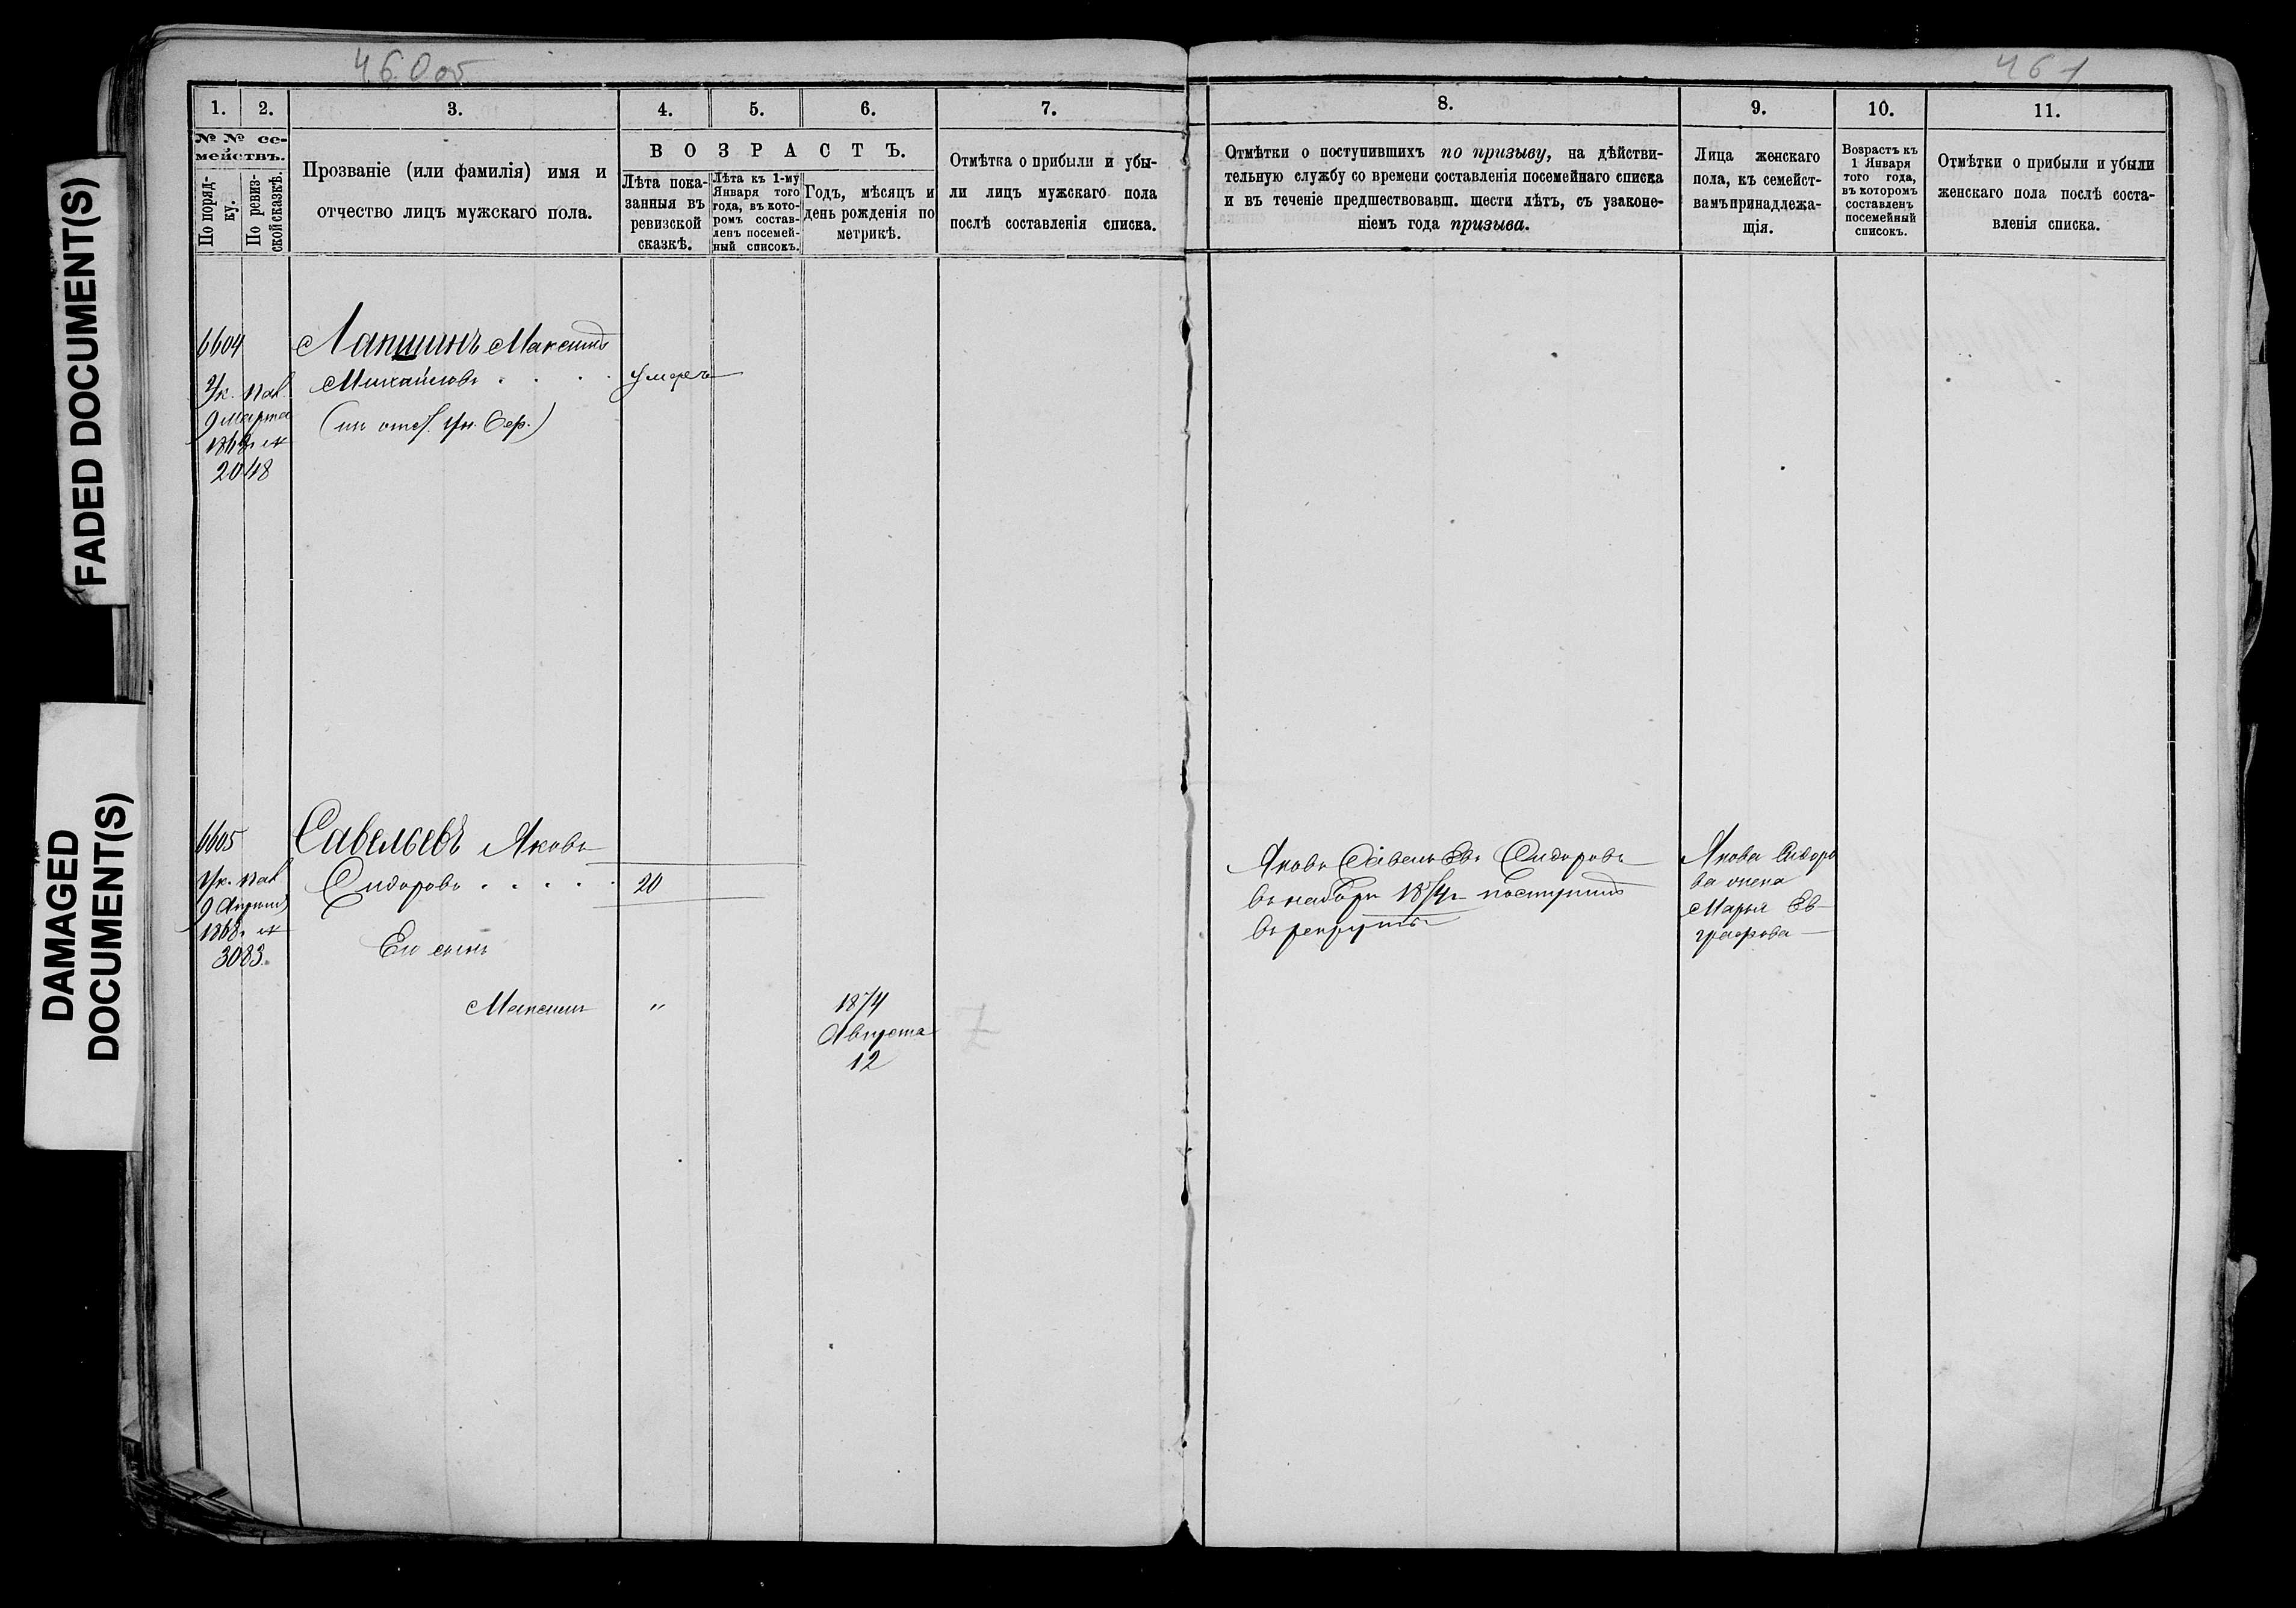 460 об
461
FADED DOCUMENT(S)
DAMAGED
DOCUMENT(S)
1.
2.
3.
4.
5.
6.
7.
№ № се-
мействъ.
По поряд-
ку.
По ревиз-
ской сказкѣ.
Прозваніе (или фамилія) имя и
отчество лицъ мужскаго пола.
ВОЗРАСТЪ.
Лѣта пока-
занныя въ
ревизской
сказкѣ.
Лѣта къ 1-му
Января того
года, въ кото-
ромъ состав-
ленъ посемей-
ный списокъ.
Годъ, мѣсяцъ и
день рожденія по
метрикѣ.
Отмѣтка о прибыли и убы-
ли лицъ мужскаго пола
послѣ составленія списка.
8.
9.
10.
11.
Отмѣтки о поступившихъ по призыву, на дѣйстви-
тельную службу со времени составленія посемейнаго списка
и въ теченіе предшествовавш. шести лѣтъ, съ узаконе-
ніемъ года призыва.
Лица женскаго
пола, къ семейст-
вамъ принадлежа-
щія.
Возрастъ къ
1 Января
того года,
въ которомъ
составленъ
посемейный
списокъ.
Отмѣтки о прибыли и убыли
женскаго пола послѣ соста-
вленія списка.
6604
Лапшинъ Максимъ
Ук. Пал.
Михайловъ
умеръ
9 Марта
1868 г №
2048
6605
Савельевъ Яковъ
Ук. Пал
Сидоровъ
20
9 Апрѣля
1868 г №
3083.
Его сынъ
Максимъ
"
1874
Августа
12
Яковъ Савельевъ Сидоровъ
въ наборъ 1874 г поступилъ
въ рекруты
Якова Сидоро
ва жена
Марья Ев-
графова